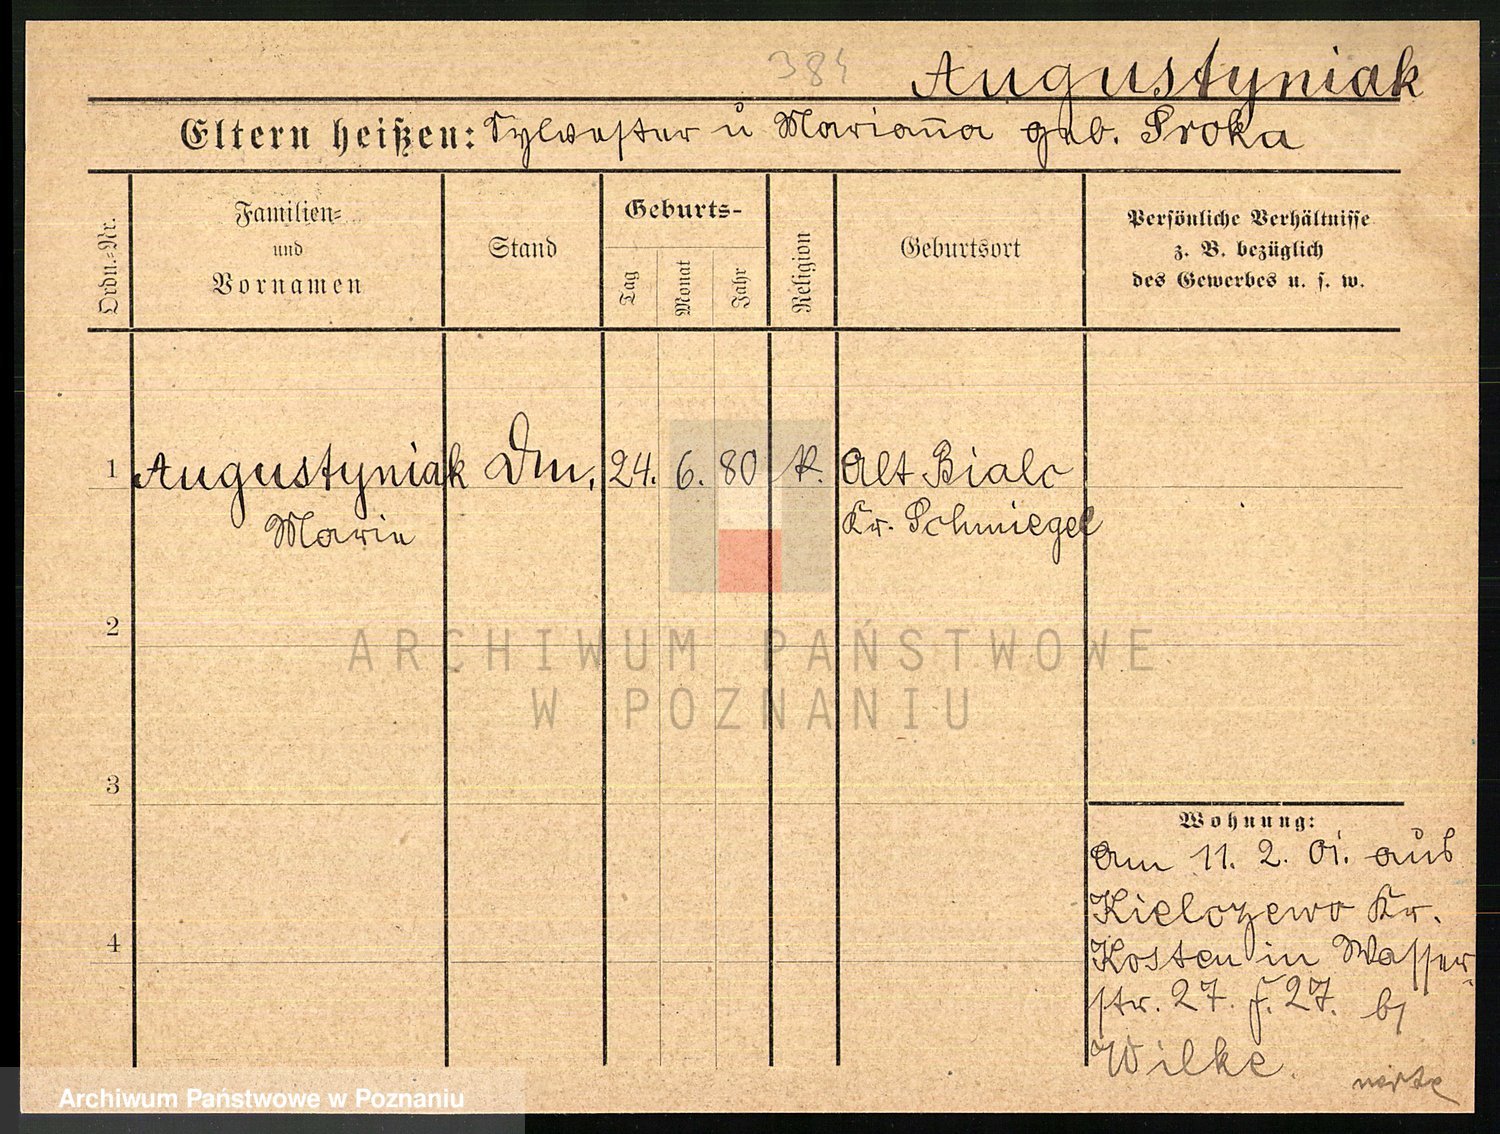 384
Augustyniak
Eltern heißen: Sylvester u Marianna geb. Proka
Ordn.-Nr.
Familien-
und
Vornamen
Stand
Geburts-
Tag
Monat
Jahr
Religion
Geburtsort
Persönliche Verhältnisse
z. B. bezüglich
des Gewerbes u. s. w.
1 Augustyniak Dm. 24. 6. 80 K. Alt Bialc
Marie Kr. Schmiegel
2
ARCHIWUM PAŃSTWOWE
W POZNANIU
3
Wohnung:
Am 11. 2. 01. aus
Kielczewo Kr.
4
Kosten in Wasser
str. 27. f. 27. by
Wilke.
Archiwum Państwowe w Poznaniu